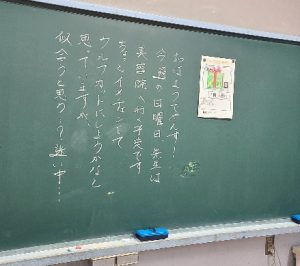 おはようございます!
今週の日曜日、先生は
美容院へ行く予定です
ちょっとイメチェンして
ウルフカットにしようかなと
思っていますが、
似合うと思う…?迷い中…